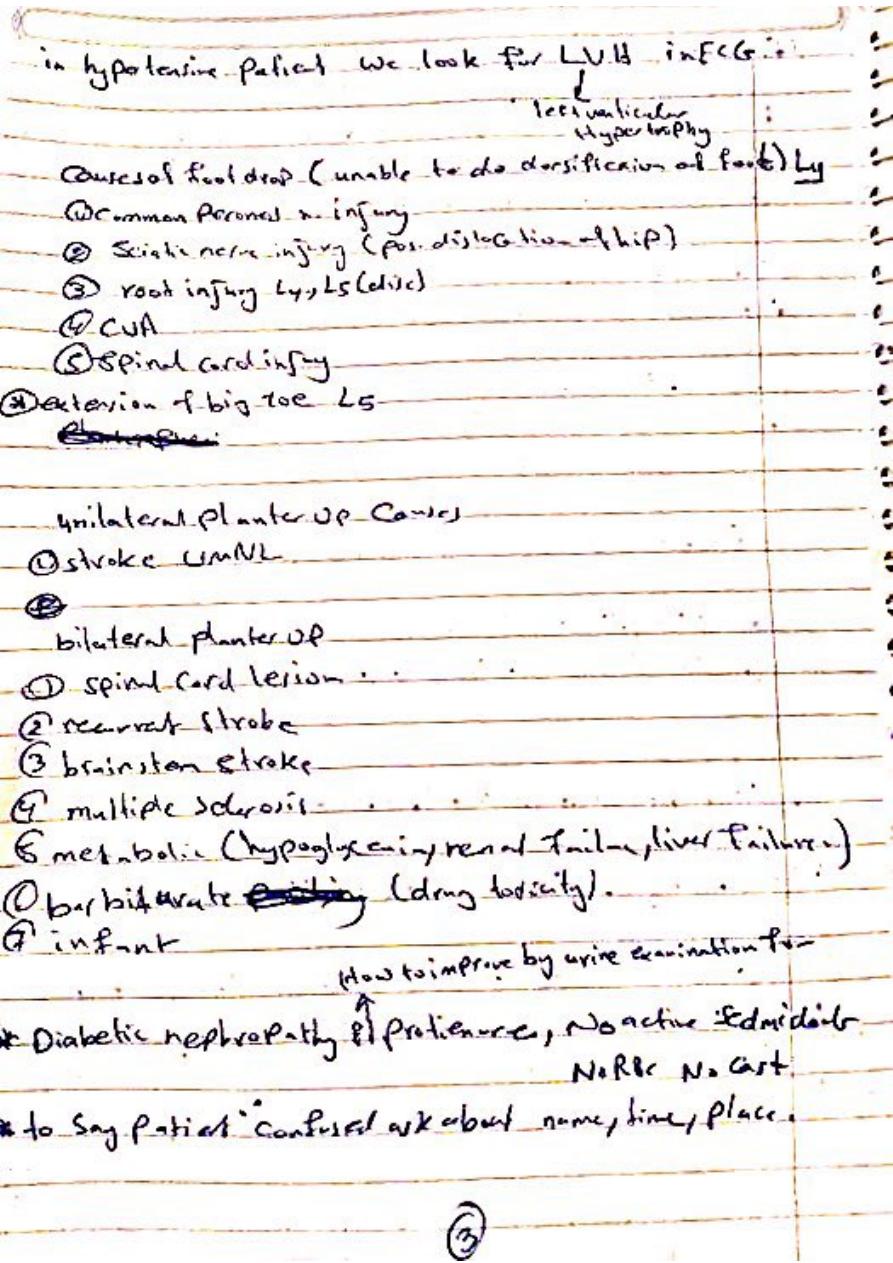 in hypotensive patient we look for LVH in ECG
left venticular
Hypertrophy
Causes of foot drop ( unable to do dorsificaion of foot) L4
① Common Peroneal n. injury
② Sciatic nerve injury (pos. dislocation of hip)
③ root injury L4, L5 (disc)
④ CVA
⑤ spinal cord injury
* extension of big toe L5
unilateral planter up Causes
① stroke UMNL
bilateral planter up
① spinal Cord lesion
② recurrat stroke
③ brainstem stroke
④ multiple sclerosis
⑤ metabolic (hypoglycemia, renal failure, liver failure)
⑥ barbiturate (drug toxicity).
⑦ infant
How to improve by urine examination for
* Diabetic nephropathy proteinurea, No active
No RBC No Cast
* to say patient confused ask about name, time, place.
③